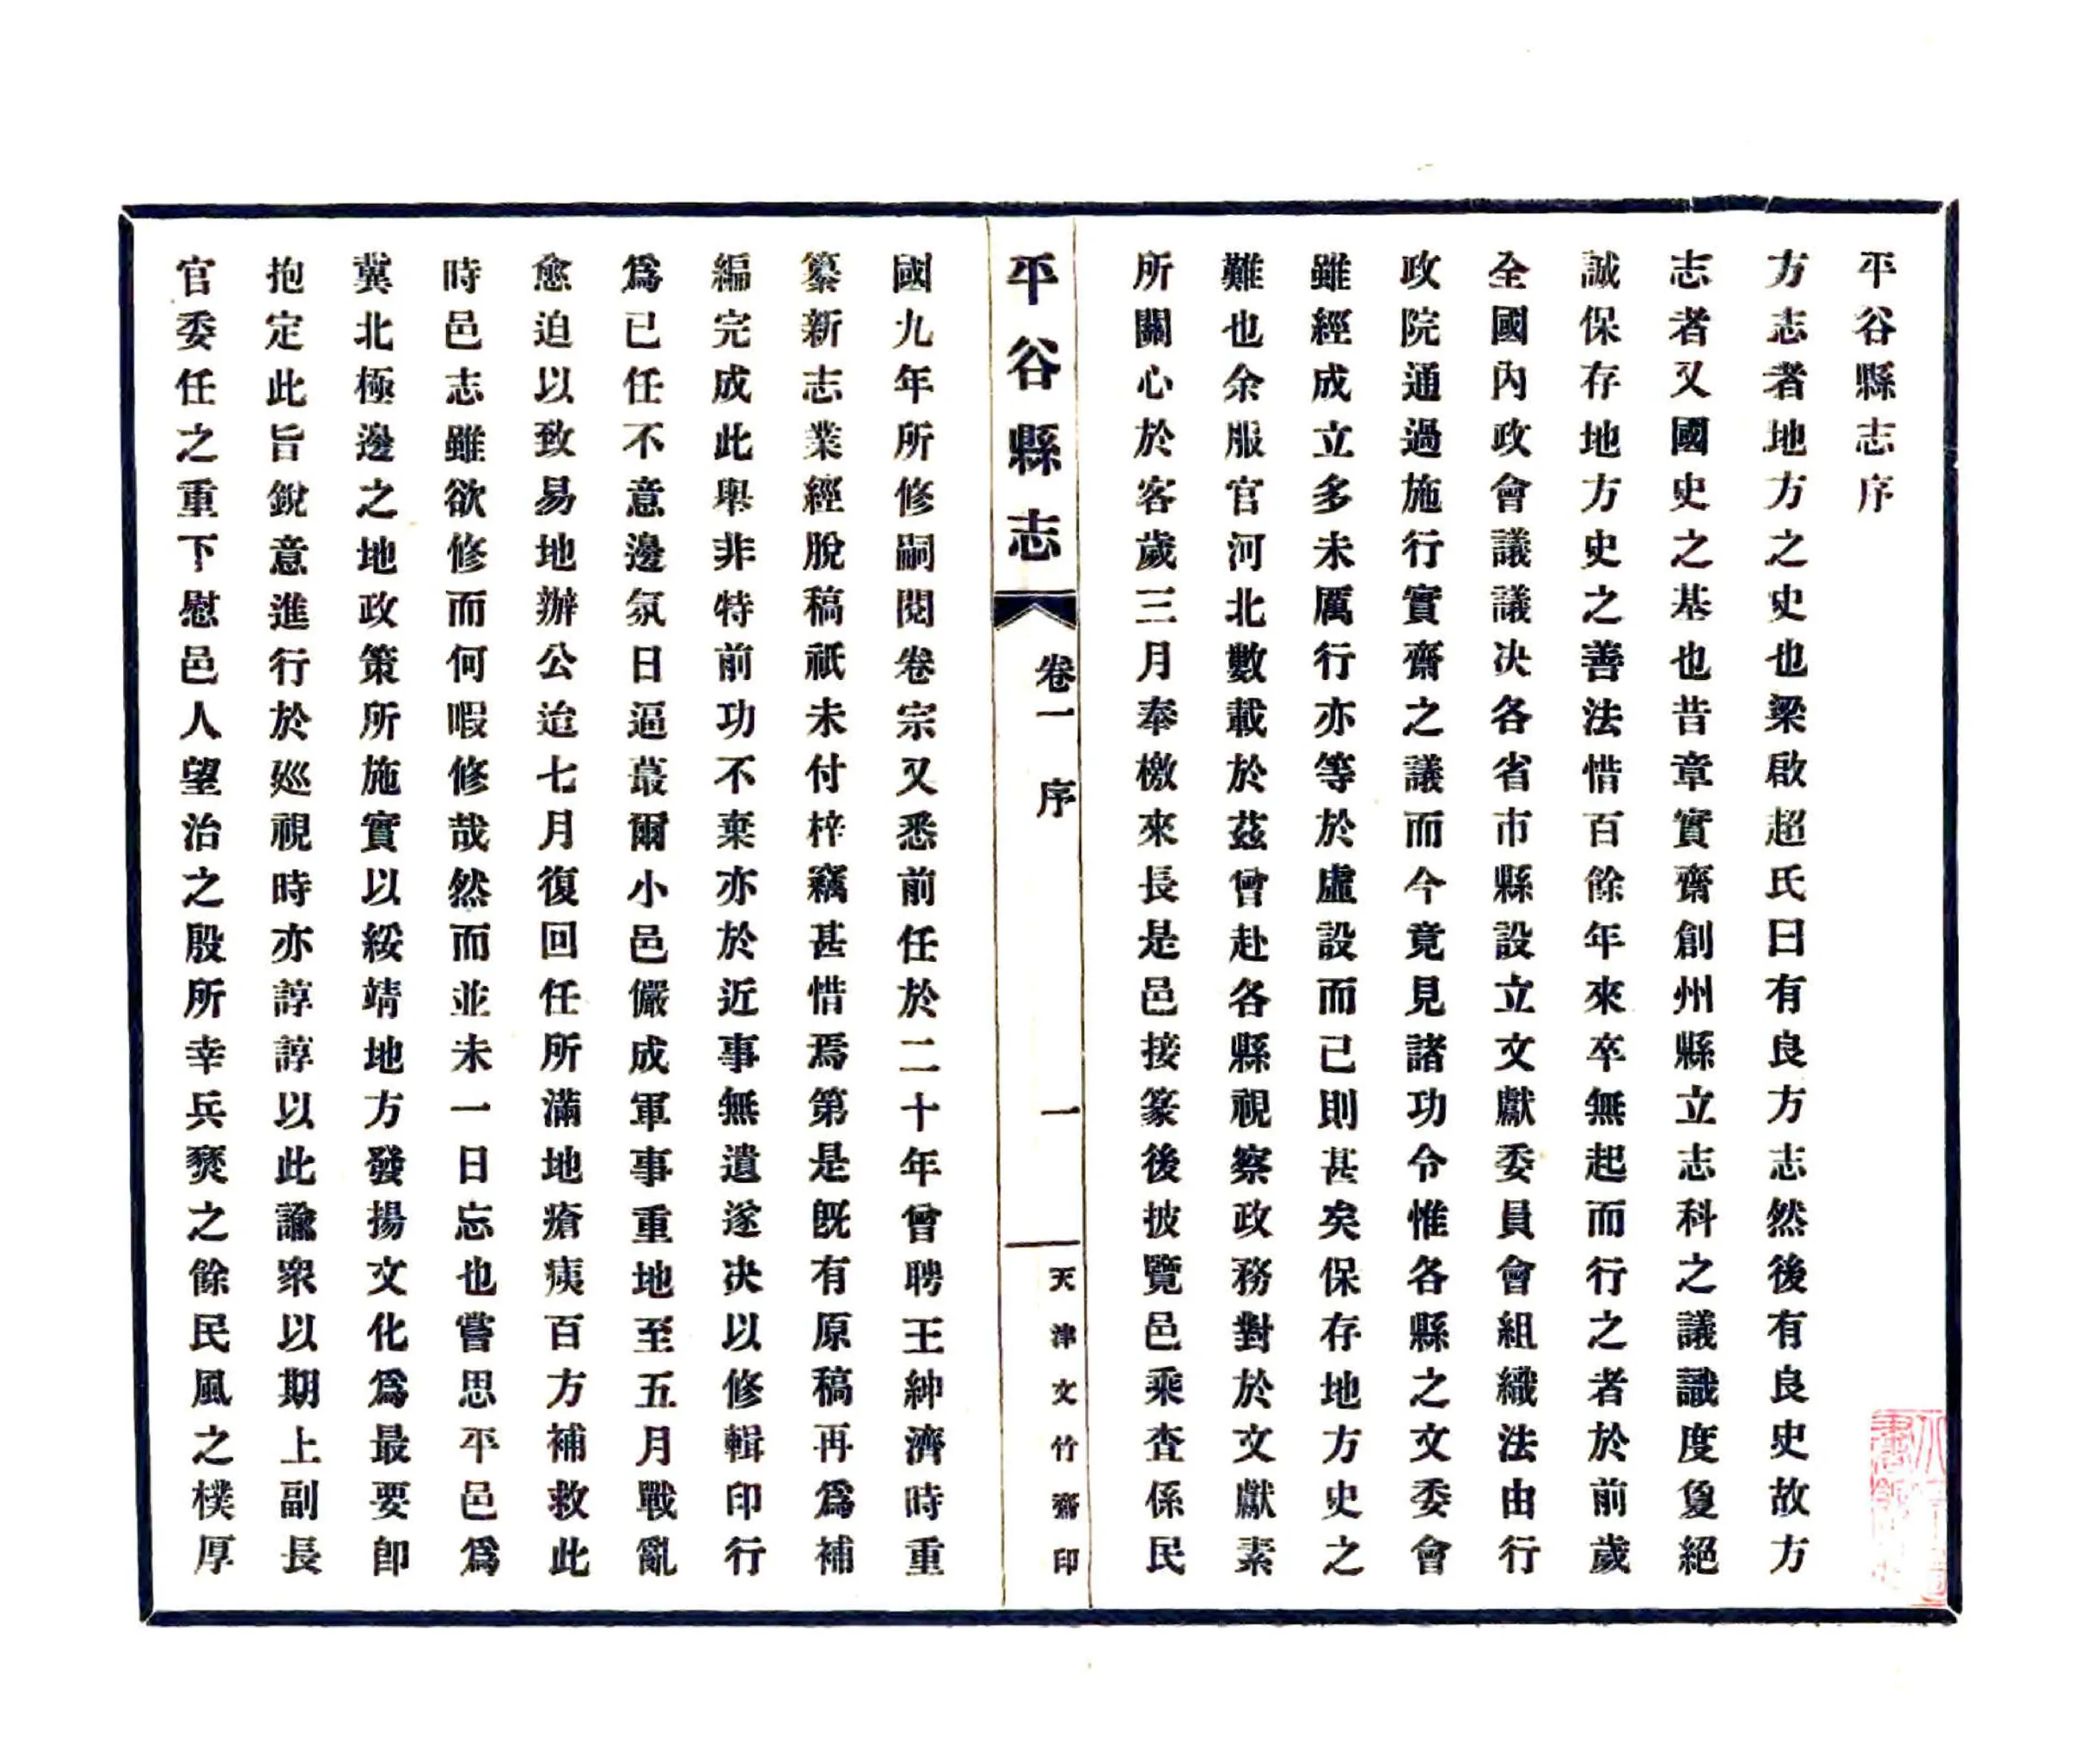 平谷縣志序
方志者地方之史也梁啟超氏曰有良方志然後有良史故方
志者又國史之基也昔章實齋創州縣立志科之議識度夐絕
誠保存地方史之善法惜百餘年來卒無起而行之者於前歲
全國內政會議議决各省市縣設立文獻委員會組織法由行
政院通過施行實齋之議而今竟見諸功令惟各縣之文委會
雖經成立多未厲行亦等於虛設而已則甚矣保存地方史之
難也余服官河北數載於茲曾赴各縣視察政務對於文獻素
所關心於客歲三月奉檄來長是邑接篆後披覽邑乘查係民
平谷縣志
卷一 序
一
天津文竹齋印
國九年所修嗣閱卷宗又悉前任於二十年曾聘王紳濟時重
纂新志業經脫稿祇未付梓竊甚惜焉第是既有原稿再爲補
編完成此舉非特前功不棄亦於近事無遺遂决以修輯印行
爲已任不意邊氛日逼蕞爾小邑儼成軍事重地至五月戰亂
愈迫以致易地辦公迨七月復回任所滿地瘡痍百方補救此
時邑志雖欲修而何暇修哉然而並未一日忘也嘗思平邑爲
冀北極邊之地政策所施實以綏靖地方發揚文化爲最要卽
抱定此旨銳意進行於廵視時亦諄諄以此諭衆以期上副長
官委任之重下慰邑人望治之殷所幸兵燹之餘民風之樸厚